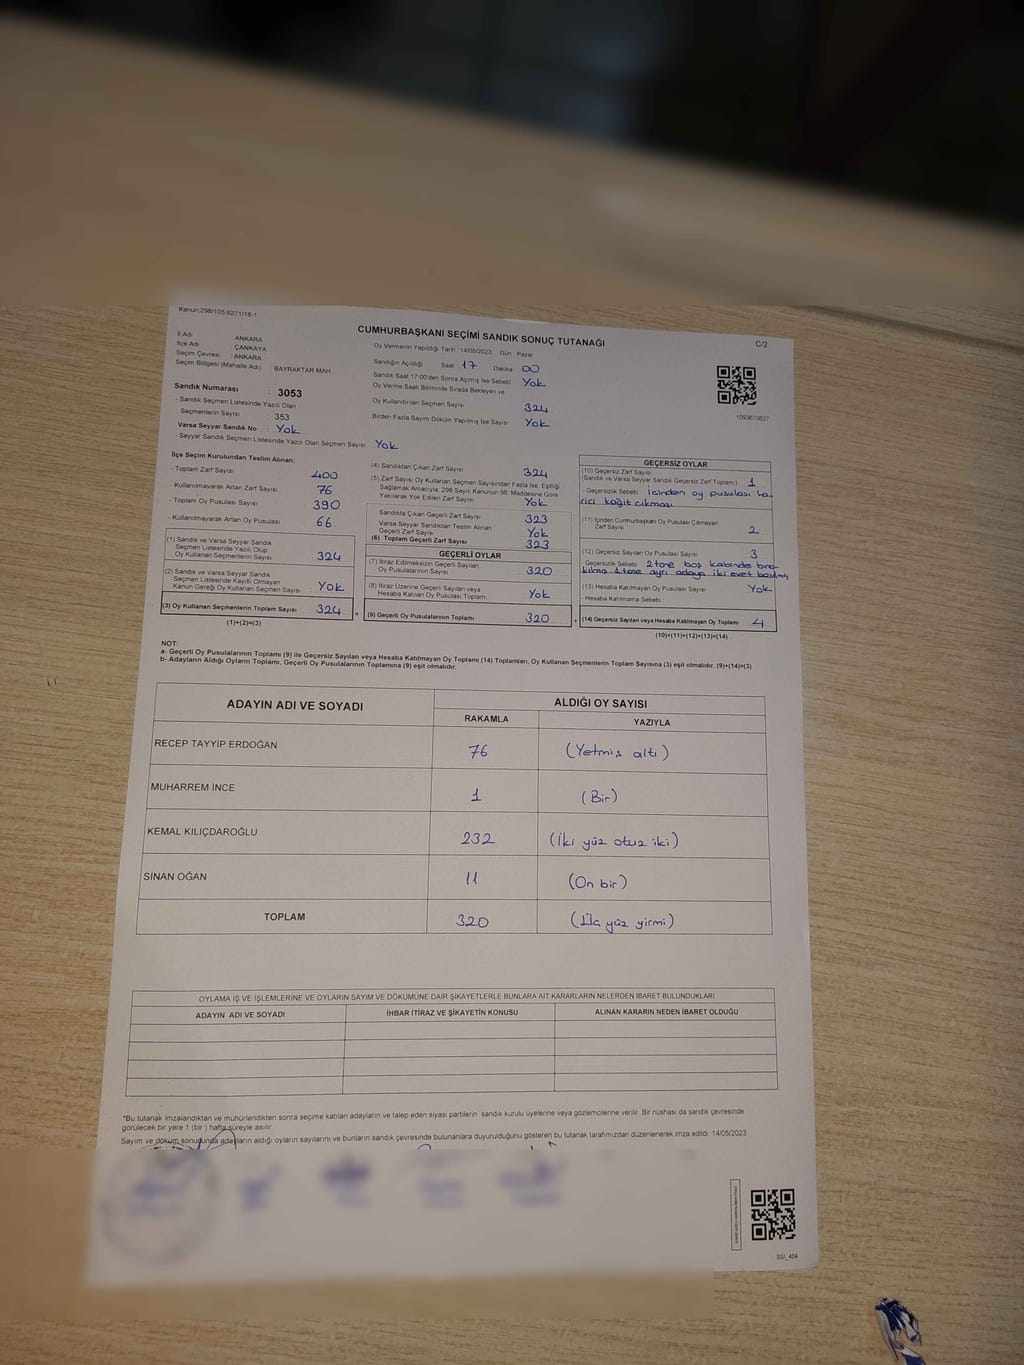 Kanun:298/105,6271/16-1
CUMHURBAŞKANI SEÇİMİ SANDIK SONUÇ TUTANAĞI
C/2
İl Adı : ANKARA
İlçe Adı : ÇANKAYA
Seçim Çevresi : ANKARA
Seçim Bölgesi (Mahalle Adı) : BAYRAKTAR MAH.
Oy Vermenin Yapıldığı Tarih : 14/05/2023 Gün : Pazar
Sandığın Açıldığı Saat 17 Dakika 00
Sandık Saat 17:00'den Sonra Açılmış İse Sebebi Yok
Oy Verme Saati Bitiminde Sırada Bekleyen ve
Oy Kullandırılan Seçmen Sayısı 324
Birden Fazla Sayım Döküm Yapılmış İse Sayısı Yok
1093670627
Sandık Numarası : 3053
- Sandık Seçmen Listesinde Yazılı Olan
Seçmenlerin Sayısı : 353
Varsa Seyyar Sandık No : Yok
- Seyyar Sandık Seçmen Listesinde Yazılı Olan Seçmen Sayısı : Yok
İlçe Seçim Kurulundan Teslim Alınan;
- Toplam Zarf Sayısı 400
- Kullanılmayarak Artan Zarf Sayısı 76
- Toplam Oy Pusulası Sayısı 390
- Kullanılmayarak Artan Oy Pusulası 66
(1) Sandık ve Varsa Seyyar Sandık
Seçmen Listesinde Yazılı Olup
Oy Kullanan Seçmenlerin Sayısı 324
(2) Sandık ve Varsa Seyyar Sandık
Seçmen Listesinde Kayıtlı Olmayan
Kanun Gereği Oy Kullanan Seçmen Sayısı Yok
(3) Oy Kullanan Seçmenlerin Toplam Sayısı 324
(1)+(2)=(3)
(4) Sandıktan Çıkan Zarf Sayısı 324
(5) Zarf Sayısı Oy Kullanan Seçmen Sayısından Fazla İse, Eşitliği
Sağlamak Amacıyla; 298 Sayılı Kanunun 98. Maddesine Göre
Yakılarak Yok Edilen Zarf Sayısı Yok
Sandıkta Çıkan Geçerli Zarf Sayısı 323
Varsa Seyyar Sandıktan Teslim Alınan
Geçerli Zarf Sayısı Yok
(6) Toplam Geçerli Zarf Sayısı 323
GEÇERLİ OYLAR
(7) İtiraz Edilmeksizin Geçerli Sayılan
Oy Pusulalarının Sayısı 320
(8) İtiraz Üzerine Geçerli Sayılan veya
Hesaba Katılan Oy Pusulası Toplamı Yok
(9) Geçerli Oy Pusulalarının Toplamı 320
GEÇERSİZ OYLAR
(10) Geçersiz Zarf Sayısı
(Sandık ve Varsa Seyyar Sandık Geçersiz Zarf Toplamı) 1
- Geçersizlik Sebebi : İçinden oy pusulası ha-
rici kağıt çıkması
(11) İçinden Cumhurbaşkanı Oy Pusulası Çıkmayan
Zarf Sayısı 2
(12) Geçersiz Sayılan Oy Pusulası Sayısı 3
- Geçersizlik Sebebi : 2 tane boş kabinde bıra-
kılma 1 tane ayrı adaya iki evet basılmış
(13) Hesaba Katılmayan Oy Pusulası Sayısı Yok
- Hesaba Katılmama Sebebi :
(14) Geçersiz Sayılan veya Hesaba Katılmayan Oy Toplamı 4
(10)+(11)+(12)+(13)=(14)
NOT:
a- Geçerli Oy Pusulalarının Toplamı (9) ile Geçersiz Sayılan veya Hesaba Katılmayan Oy Toplamı (14) Toplamları, Oy Kullanan Seçmenlerin Toplam Sayısına (3) eşit olmalıdır. (9)+(14)=(3)
b- Adayların Aldığı Oyların Toplamı, Geçerli Oy Pusulalarının Toplamına (9) eşit olmalıdır.
ADAYIN ADI VE SOYADI
ALDIĞI OY SAYISI
RAKAMLA YAZIYLA
RECEP TAYYİP ERDOĞAN 76 (Yetmiş altı)
MUHARREM İNCE 1 (Bir)
KEMAL KILIÇDAROĞLU 232 (İki yüz otuz iki)
SİNAN OĞAN 11 (On bir)
TOPLAM 320 (Üç yüz yirmi)
OYLAMA İŞ VE İŞLEMLERİNE VE OYLARIN SAYIM VE DÖKÜMÜNE DAİR ŞİKAYETLERLE BUNLARA AİT KARARLARIN NELERDEN İBARET BULUNDUKLARI
ADAYIN ADI VE SOYADI İHBAR İTİRAZ VE ŞİKAYETİN KONUSU ALINAN KARARIN NEDEN İBARET OLDUĞU
*Bu tutanak imzalandıktan ve mühürlendikten sonra seçime katılan adayların ve talep eden siyasi partilerin sandık kurulu üyelerine veya gözlemcilerine verilir. Bir nüshası da sandık çevresinde
görülecek bir yere 1 (bir ) hafta süreyle asılır.
Sayım ve döküm sonucunda adayların aldığı oyların sayılarını ve bunların sandık çevresinde bulunanlara duyurulduğunu gösteren bu tutanak tarafımızdan düzenlenerek imza edildi. 14/05/2023
SSI_404